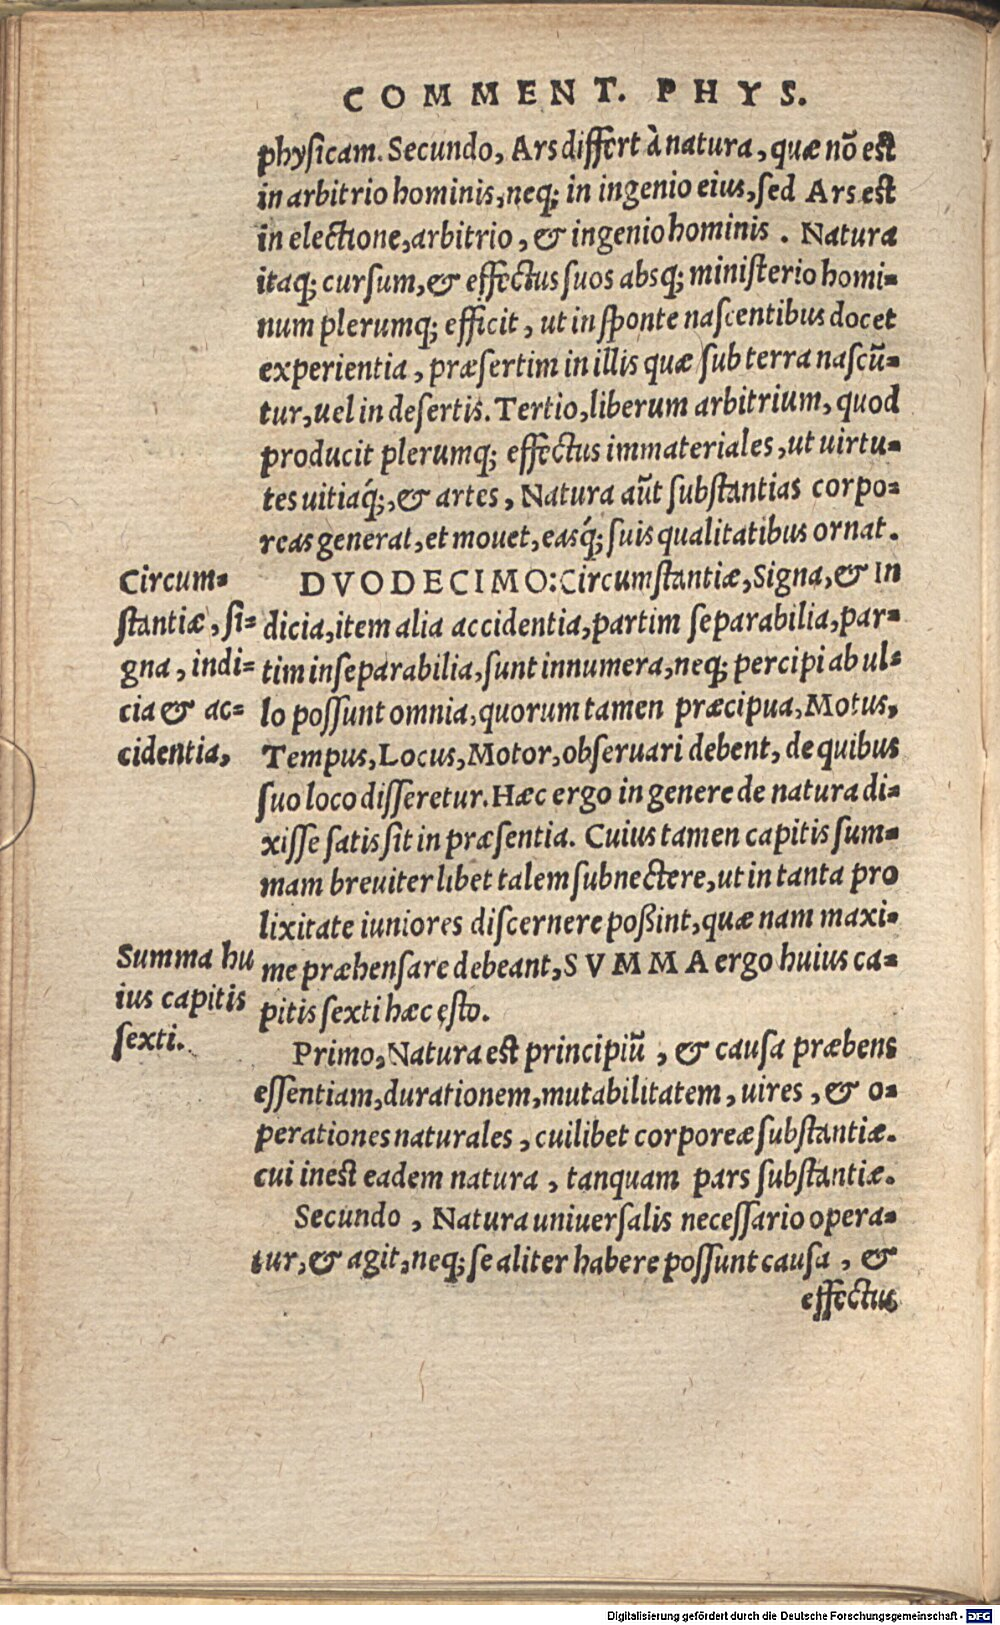 COMMENT. PHYS.
physicam. Secundo, Ars differt à natura, quæ nõ est
in arbitrio hominis, neq; in ingenio eius, sed Ars est
in electione, arbitrio, & ingenio hominis. Natura
itaq; cursum, & effectus suos absq; ministerio homi-
num plerumq; efficit, ut in sponte nascentibus docet
experientia, præsertim in illis quæ sub terra nascũ-
tur, uel in desertis. Tertio, liberum arbitrium, quod
producit plerumq; effectus immateriales, ut uirtu-
tes uitiaq́;, & artes, Natura aũt substantias corpo-
reas generat, et mouet, easq́; suis qualitatibus ornat.
Circum-
stantiæ, si-
gna, indi-
cia & ac-
cidentia,
DVODECIMO: Circumstantiæ, Signa, & In
dicia, item alia accidentia, partim separabilia, par-
tim inseparabilia, sunt innumera, neq; percipi ab ul-
lo possunt omnia, quorum tamen præcipua, Motus,
Tempus, Locus, Motor, obseruari debent, de quibus
suo loco disseretur. Hæc ergo in genere de natura di-
xisse satis sit in præsentia. Cuius tamen capitis sum-
mam breuiter libet talem subnectere, ut in tanta pro
lixitate iuniores discernere poßint, quæ nam maxi-
Summa hu
ius capitis
sexti.
me præhensare debeant, SVMMA ergo huius ca-
pitis sexti hæc esto.
Primo, Natura est principiũ, & causa præbens
essentiam, durationem, mutabilitatem, uires, & o-
perationes naturales, cuilibet corporeæ substantiæ.
cui inest eadem natura, tanquam pars substantiæ.
Secundo, Natura uniuersalis necessario opera-
tur, & agit, neq; se aliter habere possunt causa, &
effectus
Digitalisierung gefördert durch die Deutsche Forschungsgemeinschaft - DFG